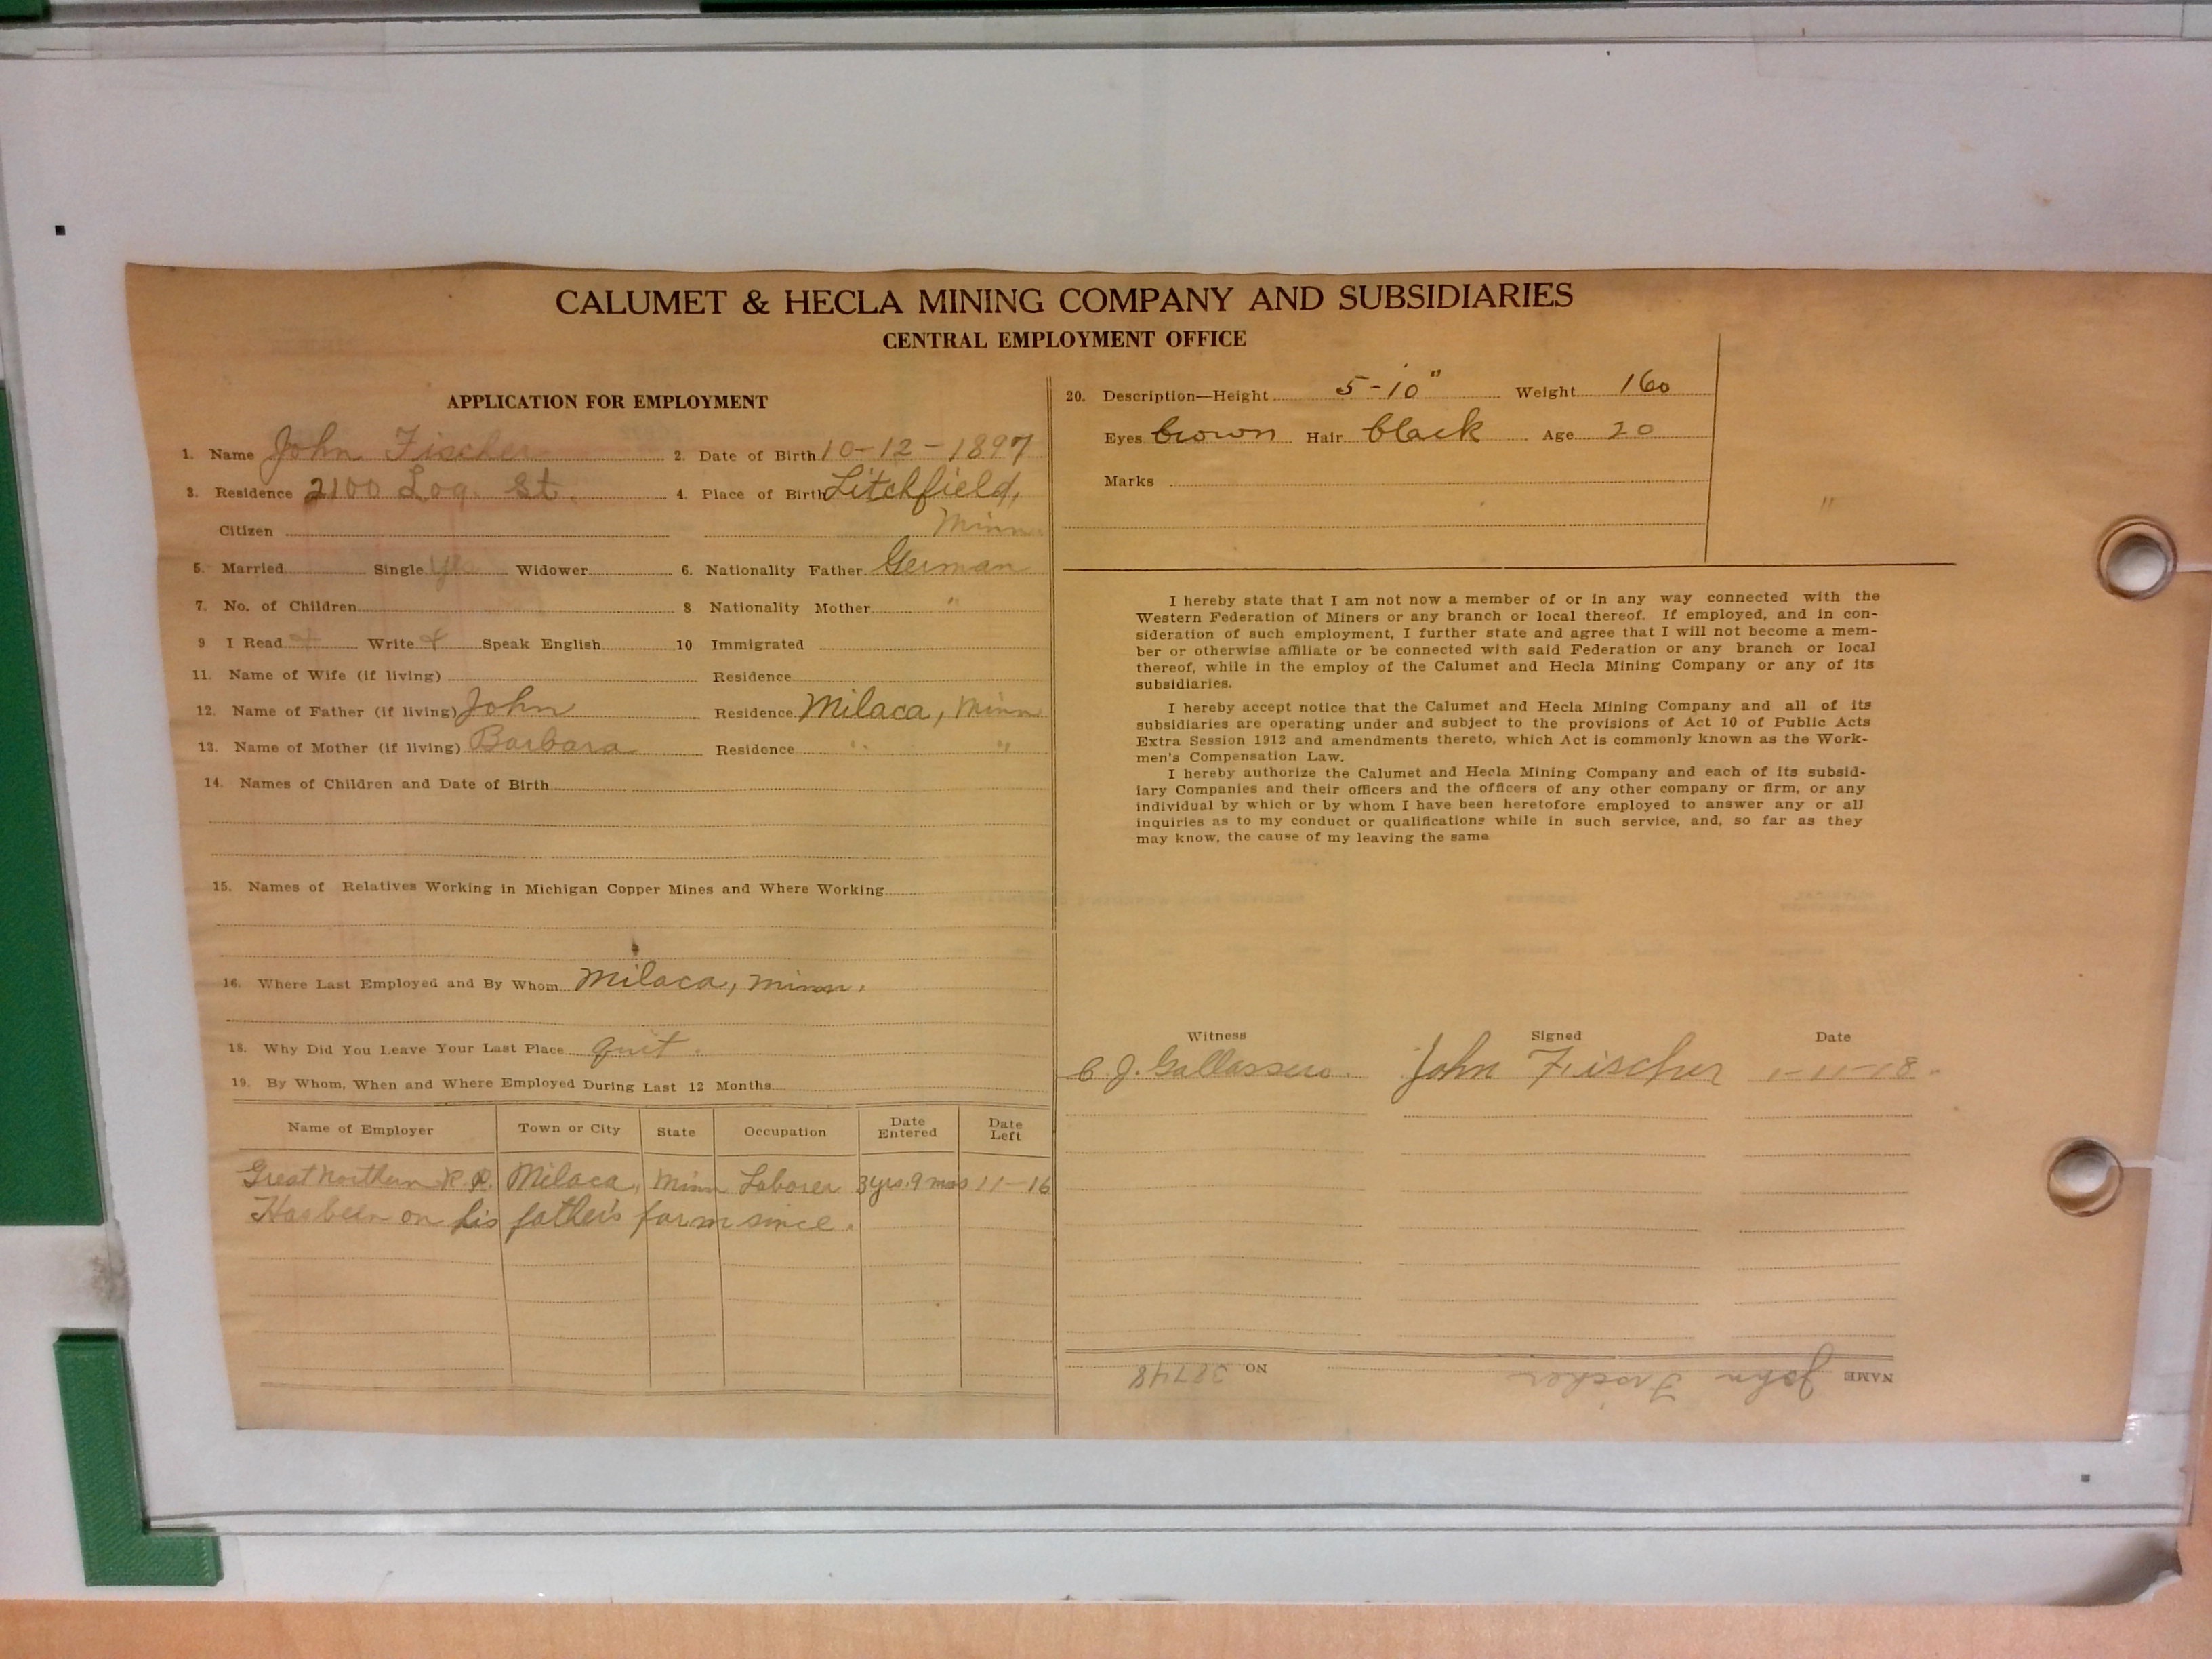 CALUMET & HECLA MINING COMPANY AND SUBSIDIARIES
CENTRAL EMPLOYMENT OFFICE
APPLICATION FOR EMPLOYMENT
1. Name John Fischer 2. Date of Birth 10-12-1897
3. Residence 2100 Log. St. 4. Place of Birth Litchfield,
Citizen Minn.
5. Married Single yes Widower 6. Nationality Father German
7. No. of Children 8 Nationality Mother "
9 I Read + Write + Speak English 10 Immigrated
11. Name of Wife (if living) Residence
12. Name of Father (if living) John Residence Milaca, Minn
13. Name of Mother (if living) Barbara Residence " "
14. Names of Children and Date of Birth
15. Names of Relatives Working in Michigan Copper Mines and Where Working
16. Where Last Employed and By Whom Milaca, Minn.
18. Why Did You Leave Your Last Place quit.
19. By Whom, When and Where Employed During Last 12 Months
Name of Employer Town or City State Occupation Date Entered Date Left
Great Northern R.R. Milaca, Minn Laborer 3yrs. 9 mos 11-16
Has been on his father's farm since.
20. Description—Height 5-10" Weight 160
Eyes brown Hair black Age 20
Marks
"
I hereby state that I am not now a member of or in any way connected with the
Western Federation of Miners or any branch or local thereof. If employed, and in con-
sideration of such employment, I further state and agree that I will not become a mem-
ber or otherwise affiliate or be connected with said Federation or any branch or local
thereof, while in the employ of the Calumet and Hecla Mining Company or any of its
subsidiaries.
I hereby accept notice that the Calumet and Hecla Mining Company and all of its
subsidiaries are operating under and subject to the provisions of Act 10 of Public Acts
Extra Session 1912 and amendments thereto, which Act is commonly known as the Work-
men's Compensation Law.
I hereby authorize the Calumet and Hecla Mining Company and each of its subsid-
iary Companies and their officers and the officers of any other company or firm, or any
individual by which or by whom I have been heretofore employed to answer any or all
inquiries as to my conduct or qualifications while in such service, and, so far as they
may know, the cause of my leaving the same
Witness Signed Date
C. J. John Fischer 1-11-18.
NAME John Fischer NO. 38748